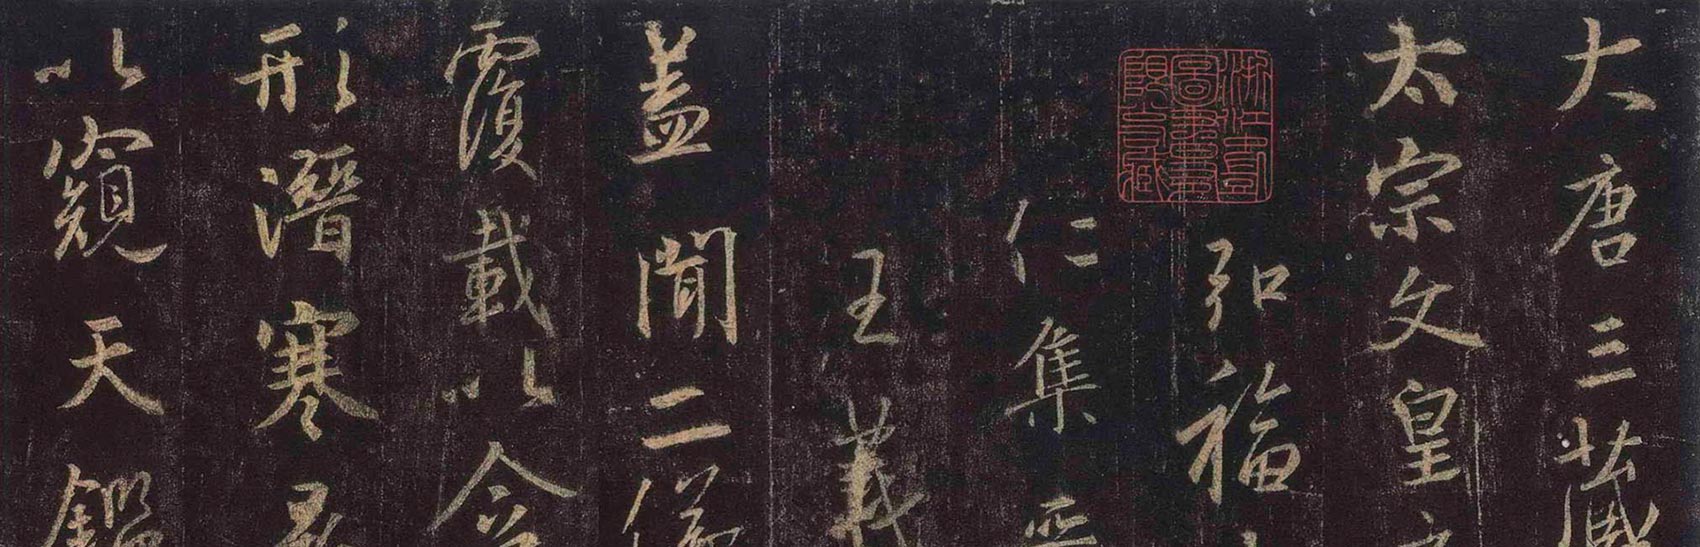 大唐三藏
太宗文皇
弘福
仁集
王羲
蓋聞二儀
覆載以含
形潛寒
以窺天鑑